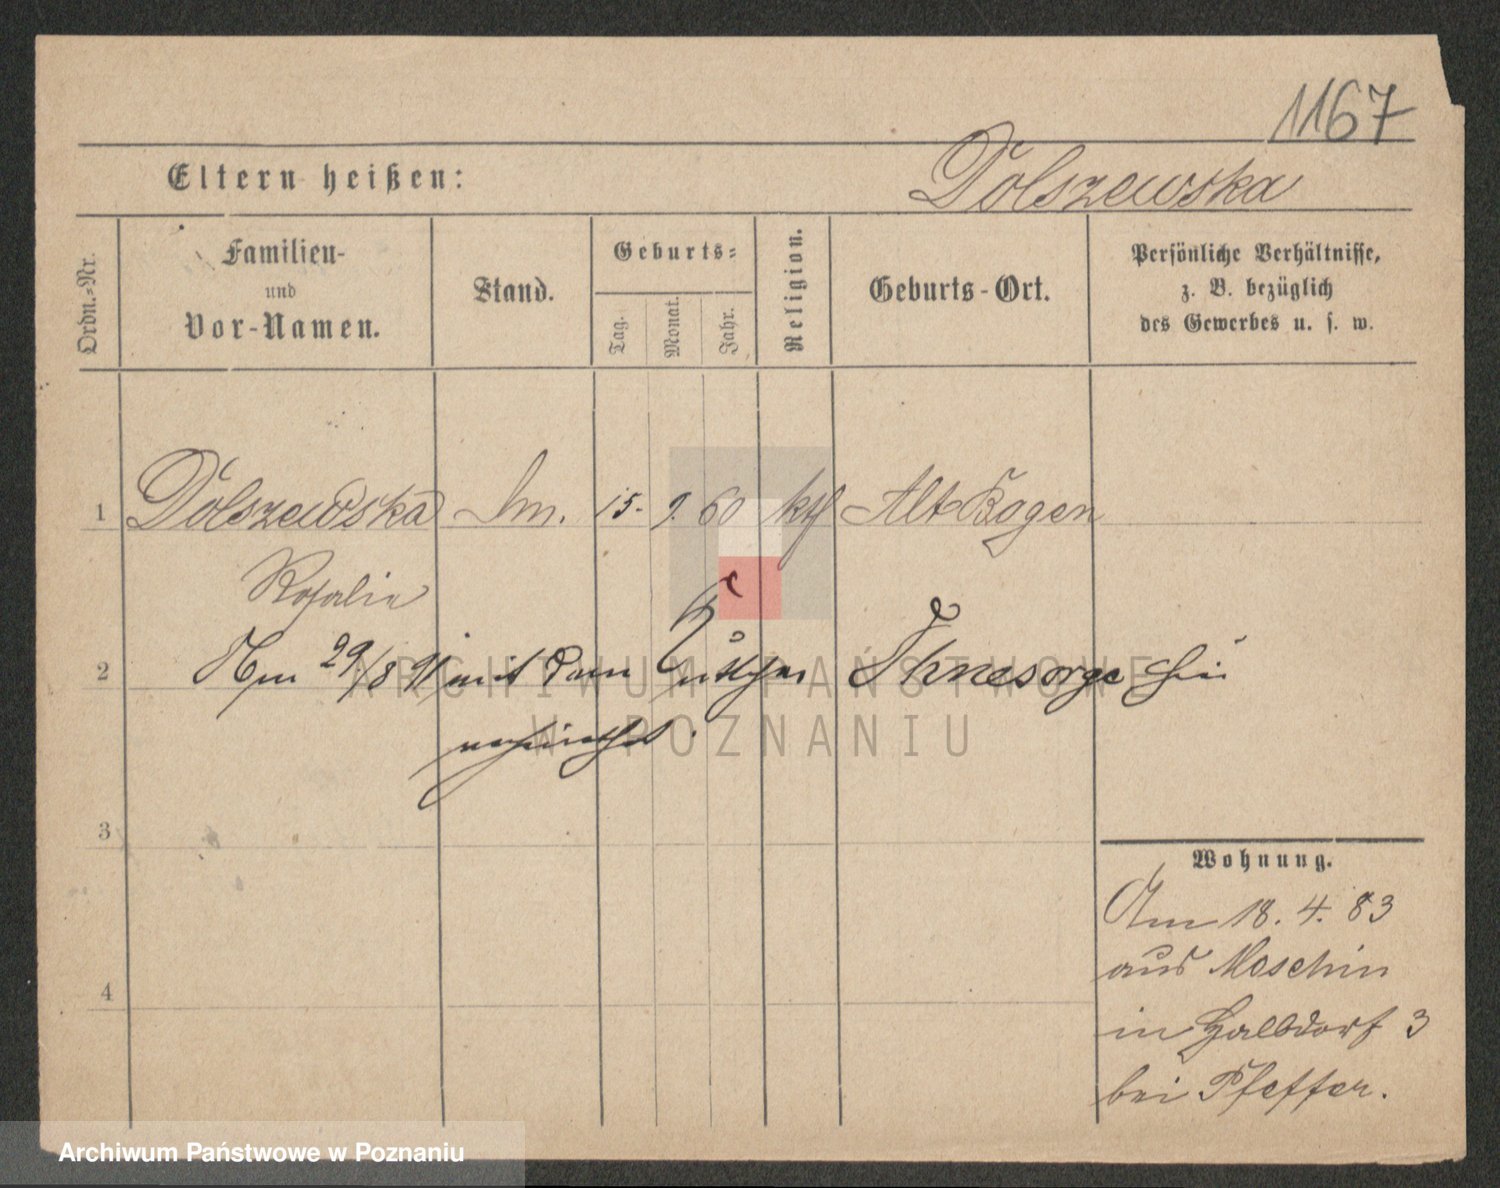 1167
Eltern heißen:
Dolszewska
Ordn.-Nr.
Familien-
und
Vor-Namen.
Stand.
Geburts-
Tag.
Monat.
Jahr.
Religion.
Geburts-Ort.
Persönliche Verhältnisse,
z. B. bezüglich
des Gewerbes u. s. w.
1 Dolszewska 15. 9. 60 kth Alt Bogen
Rosalie
2 29/8 91 mit dem Ohnesorge hier
verheirathet.
3
4
Wohnung.
Am 18. 4. 83
aus Moschin
in Halbdorf 3
bei Pfeffer.
ARCHIWUM PAŃSTWOWE
W POZNANIU
Archiwum Państwowe w Poznaniu